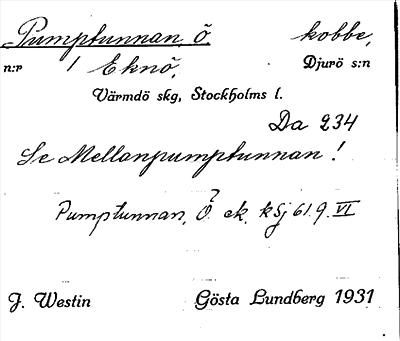 Pumptunnan, Ö. kobbe,
n:r / Eknö, Djurö s:n
Värmdö skg, Stockholms l.
Da 234
Se Mellanpumptunnan!
?
Pumptunnan, Ö. ek. ksj 61.9. VI
J. Westin Gösta Lundberg 1931